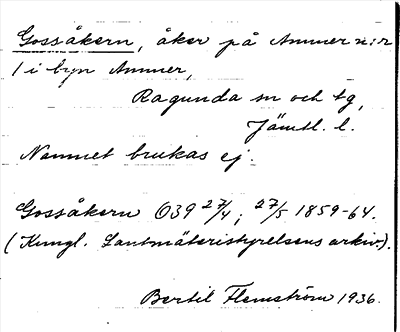 Gossåkern, åker på Ammer n:r
1 i byn Ammer,
Ragunda sn och tg,
Jämtl. l.
Namnet brukas ej.
Gossåkern O39 27/4; 27/5 1859-64.
(Kungl. Lantmäteristyrelsens arkiv).
Bertil Flemström 1936.